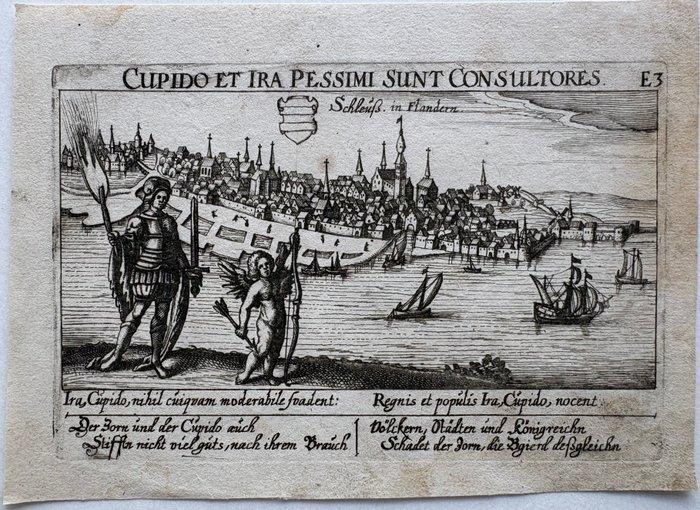 CUPIDO ET IRA PESSIMI SUNT CONSULTORES. E3
Schleuß. in Flandern
Ira, Cupido, nihil cuiquam moderabile suadent:
Regnis et populis Ira, Cupido, nocent.
Der Zorn und der Cupido auch
Stifftn nicht viel guts, nach ihrem Brauch
Völckern, Städten und Königreichn
Schadet der Zorn, die Bgierd deßgleichn